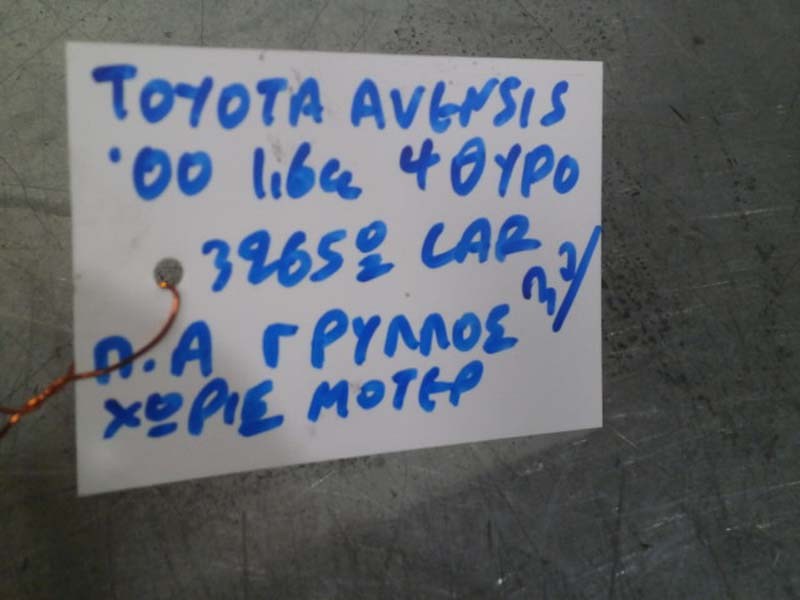 TOYOTA AVENSIS
'00 4 ΘΥΡΟ
3265º CAR
Π.Α ΓΡΥΛΛΟΣ
ΧΩΡΙΣ ΜΟΤΕΡ